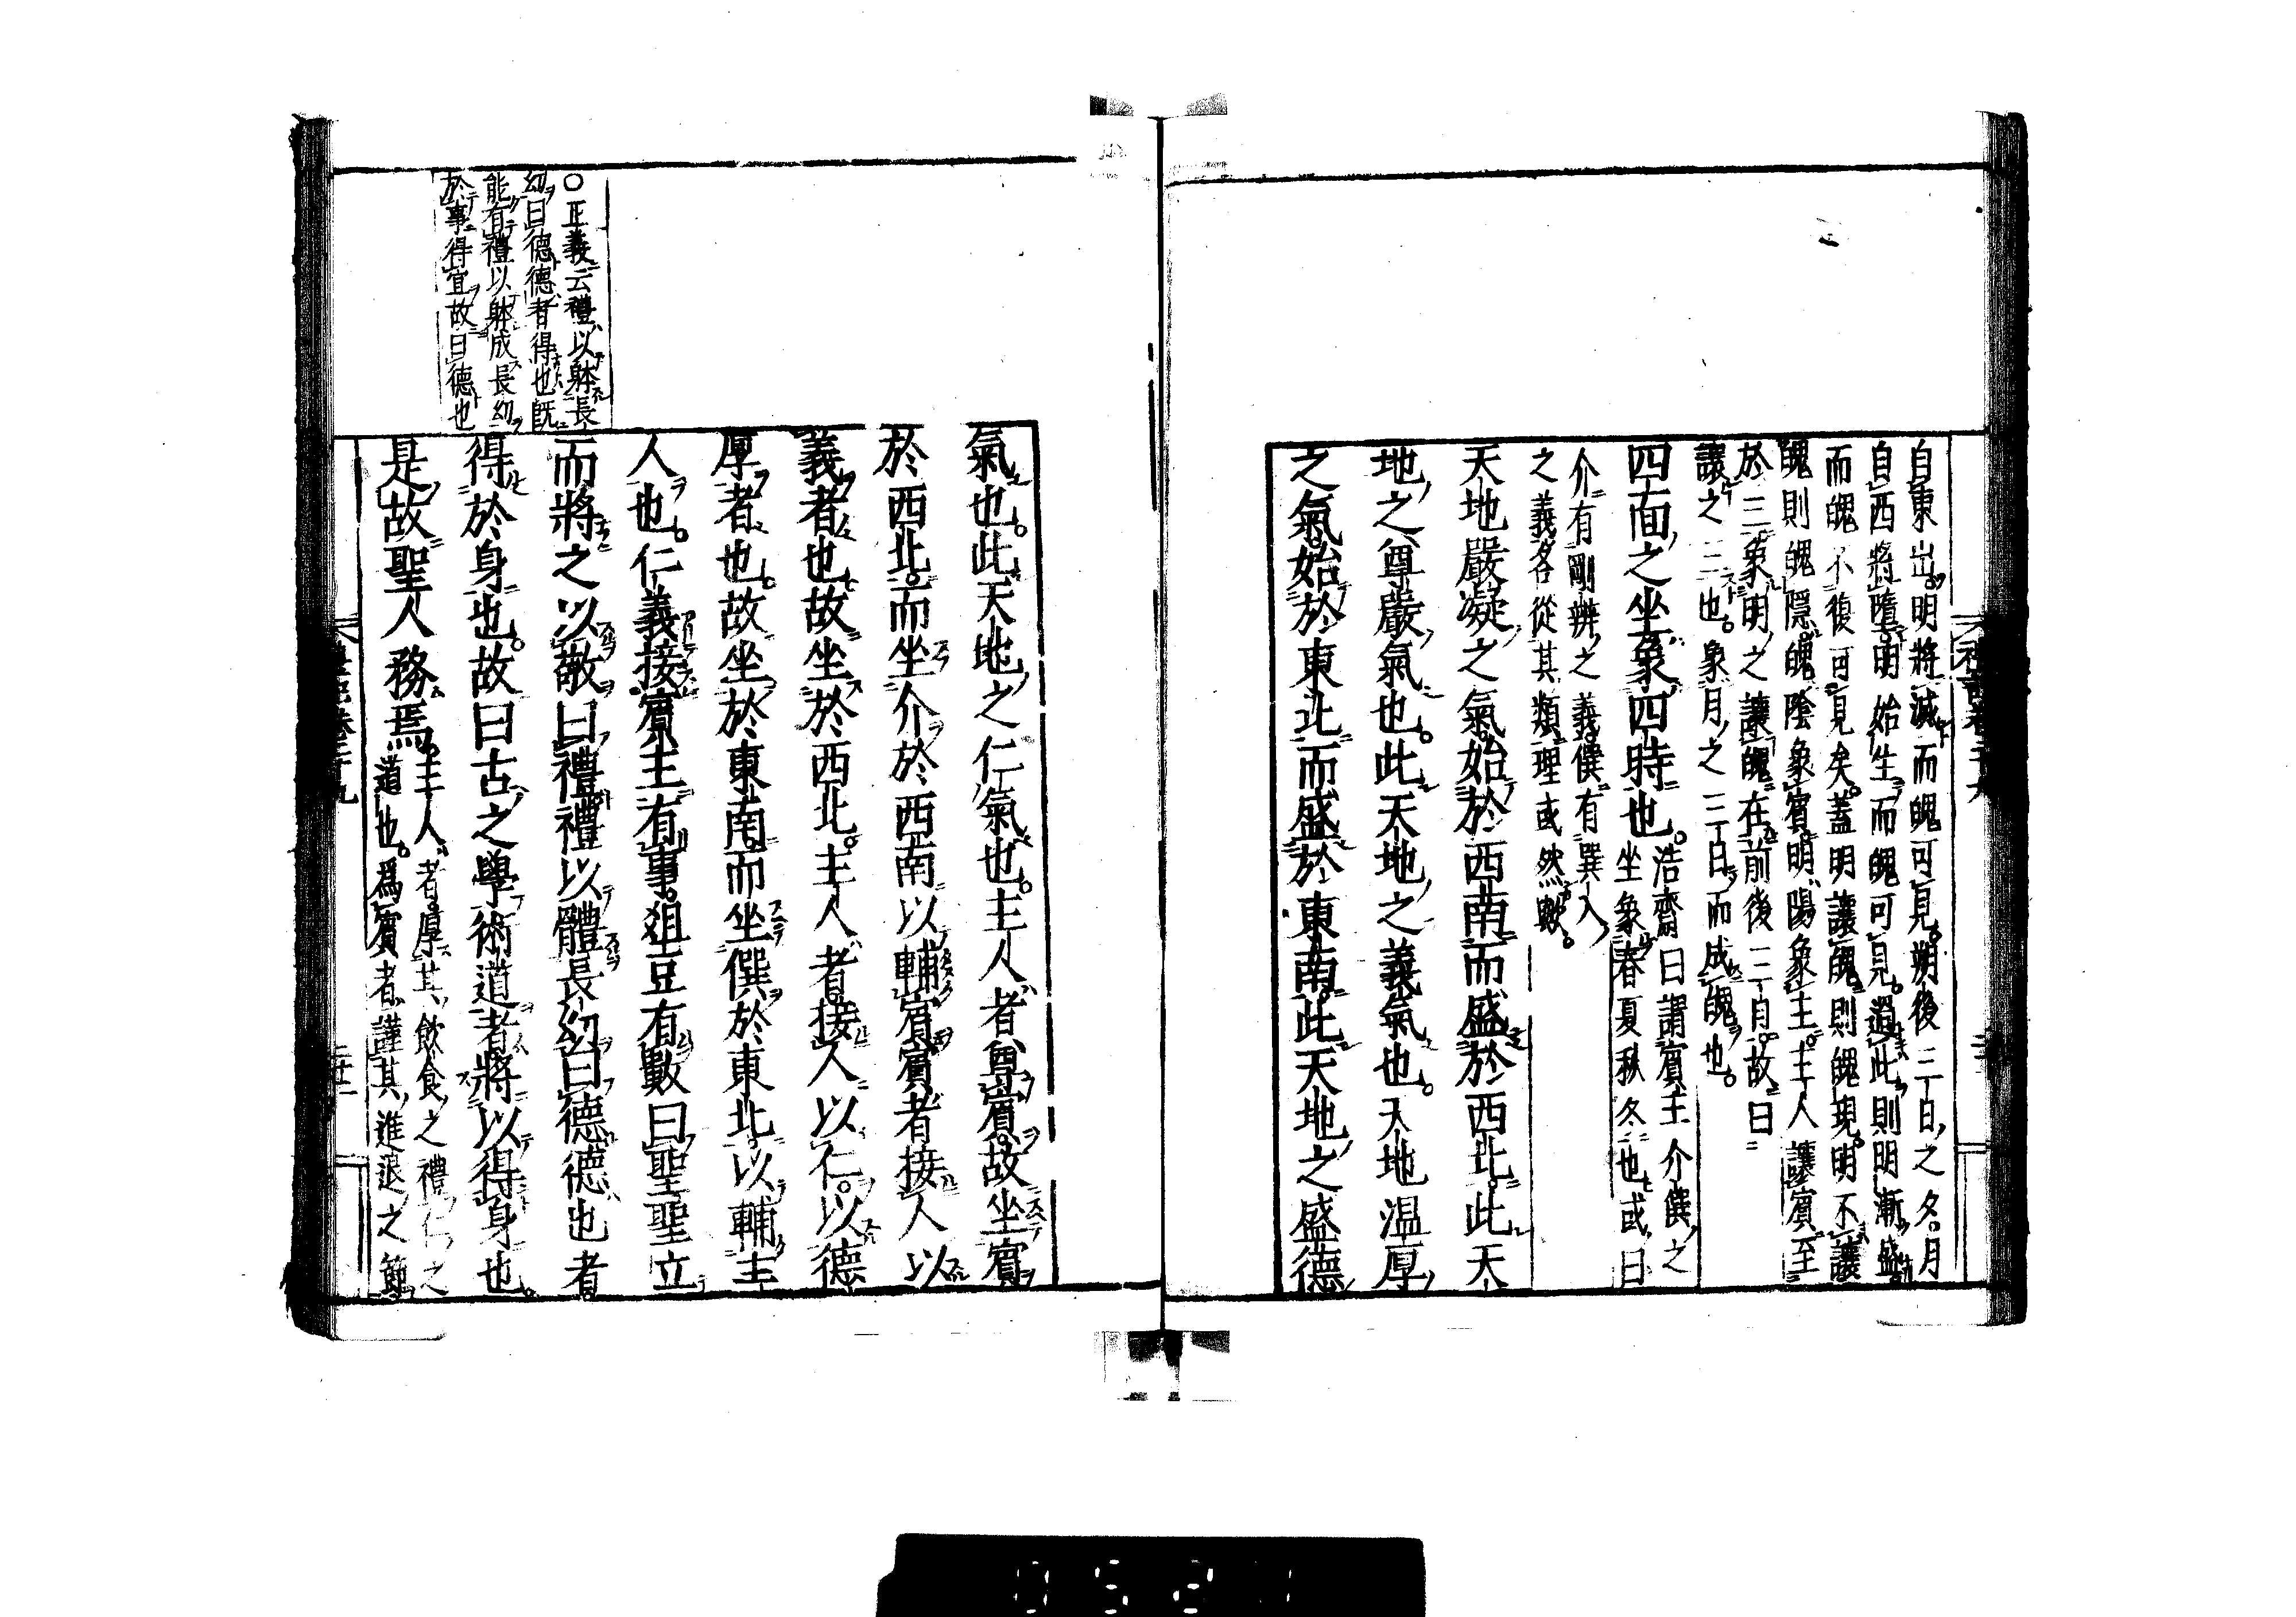 自東出。明將滅而魄可見。朔後三日之夕。月
自西將墮。明始生而魄可見。過此則明漸盛
而魄不復可見矣。蓋明讓魄則魄現。明不讓
魄則魄隱。魄陰象賓。明陽象主。主人讓賓至
於三。象明之讓魄在前後三日。故曰
讓之三也。象月之三日而成魄也。
四面之坐象四時也。浩齋曰謂賓主介僎之
坐象春夏秋冬也或曰
介有剛辨之義僎有巽入
之義各從其類理或然歟。
天地嚴凝之氣始於西南而盛於西北。此天
地之尊嚴氣也。此天地之義氣也。天地温厚
之氣始於東北而盛於東南。此天地之盛德
氣也。此天地之仁氣也。主人者尊賓。故坐賓
於西北。而坐介於西南以輔賓。賓者接人以
義者也故坐於西北。主人者。接人以仁。以德
厚者也。故坐於東南。而坐僎於東北。以輔主
人也。仁義接。賓主有事。俎豆有數曰聖聖立
而將之以敬曰禮禮以體長幼曰德德也者。
得於身也。故曰古之學術道者將以得身也。
是故聖人務焉。主人者。厚其飲食之禮仁之
道也。爲賓者謹其進退之節。
○正義云禮以躰長
幼曰德德者得也既
能有禮以躰成長幼
於事得宜故曰德也
禮記卷二十九